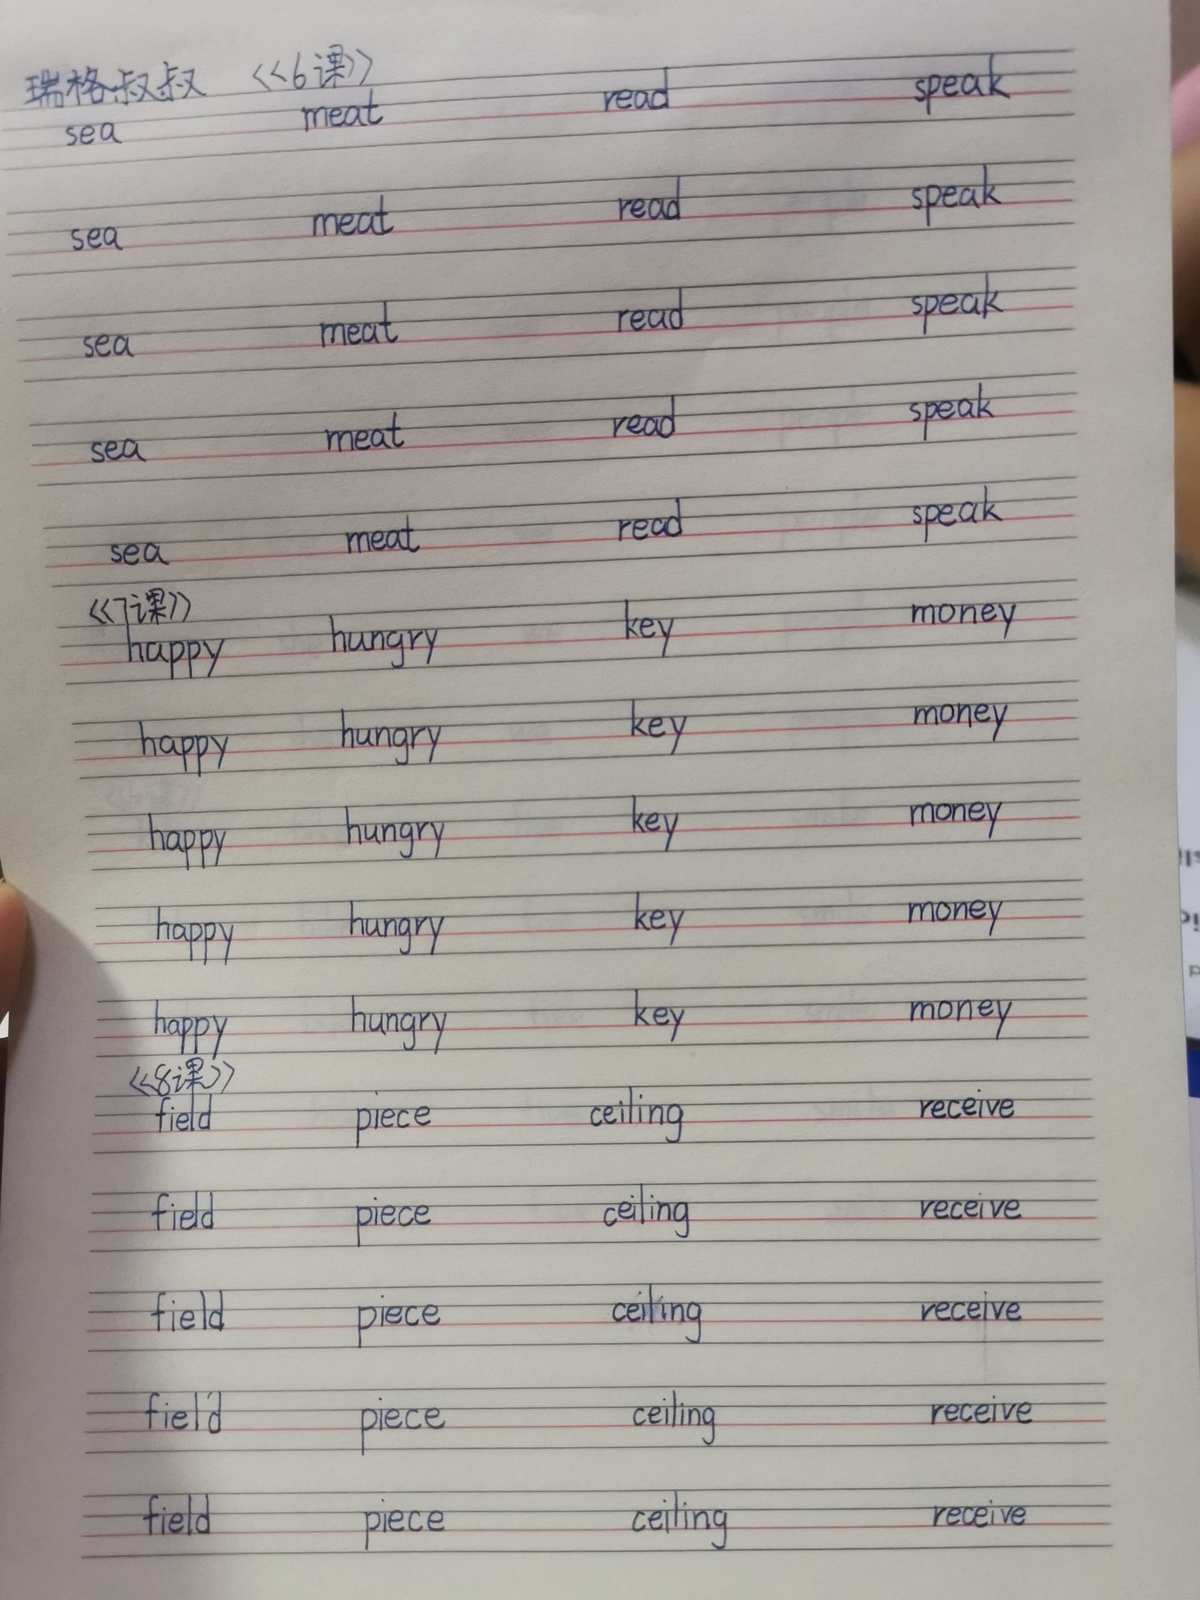 瑞格叔叔 《6课》
sea meat read speak
sea meat read speak
sea meat read speak
sea meat read speak
sea meat read speak
《7课》
happy hungry key money
happy hungry key money
happy hungry key money
happy hungry key money
happy hungry key money
《8课》
field piece ceiling receive
field piece ceiling receive
field piece ceiling receive
field piece ceiling receive
field piece ceiling receive